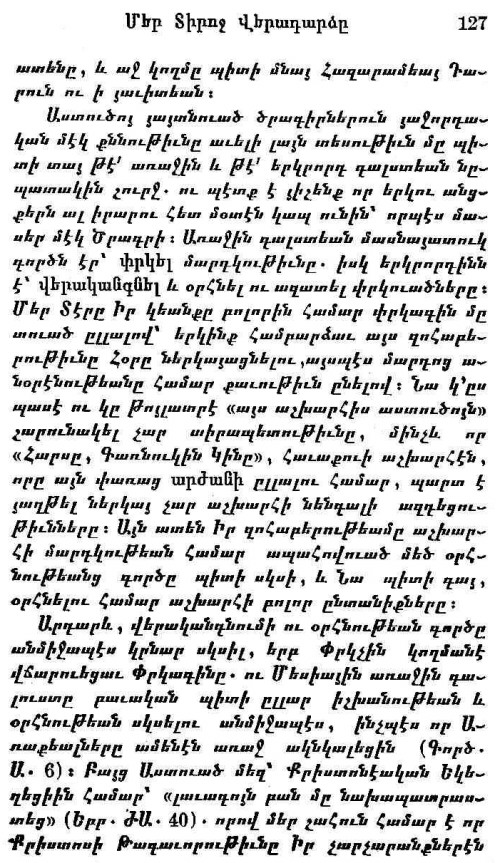 Մեր Տիրոջ Վերադարձը 127
ատենը, և աջ կողմը պիտի մնայ Հազարամեայ Դա-
րուն ու ի յաւիտեան։
Աստուծոյ յայտնուած ծրագիրներուն յաջորդա-
կան մէկ քննութիւնը աւելի լայն տեսութիւն մը պի-
տի տայ թէ՛ առաջին և թէ՛ երկրորդ գալստեան նը-
պատակին շուրջ. ու պէտք է յիշենք որ երկու անց-
քերն ալ իրարու հետ մօտէն կապ ունին՝ որպէս մա-
սեր մէկ Ծրագրի։ Առաջին գալստեան մասնայատուկ
գործն էր՝ փրկել մարդկութիւնը. իսկ երկրորդինն
է՝ վերականգնել և օրհնել ու ազատել փրկուածները։
Մեր Տէրը Իր կեանքը բոլորին համար փրկագին մը
տուած ըլլալով՝ երկինք համբարձաւ այս զոհաբե-
րութիւնը Հօրը ներկայացնելու, այսպէս մարդոց ա-
նօրէնութեանը համար քաւութիւն ընելով։ Նա կ՚ըս
պասէ ու կը թոյլատրէ «այս աշխարհիս աստուծոյն»
շարունակել չար տիրապետութիւնը, մինչև որ
«Հարսը, Գառնուկին Կինը», հաւաքուի աշխարհէն,
որը այն փառաց արժանի ըլլալու համար, պարտ է
յաղթել ներկայ չար աշխարհի նենգալի ազդեցու-
թիւնները։ Այն ատեն Իր զոհաբերութեամբ աշխար-
հի մարդկութեան համար ապահովուած մեծ օրհ-
նութեանց գործը պիտի սկսի, և Նա պիտի գայ,
օրհնելու համար աշխարհի բոլոր ընտանիքները։
Արդարև, վերականգնումի ու օրհնութեան գործը
անմիջապէս կրնար սկսիլ, երբ Փրկչին կողմանէ
վճարուեցաւ Փրկագինը. ու Մեսիային առաջին գա-
լուստը բաւական պիտի ըլլար իշխանութեան և
օրհնութեան սկսելու անմիջապէս, ինչպէս որ Ա-
ռաքեալները ամենէն առաջ ակնկալեցին (Գործ.
Ա. 6)։ Բայց Աստուած մեզ՝ Քրիստոնէական Եկե-
ղեցիին համար՝ «լաւագոյն բան մը նախապատրաս-
տեց» (Եբր. ԺԱ. 40). որով մեր շահուն համար է որ
Քրիստոսի Թագաւորութիւնը Իր չարչարանքներէն